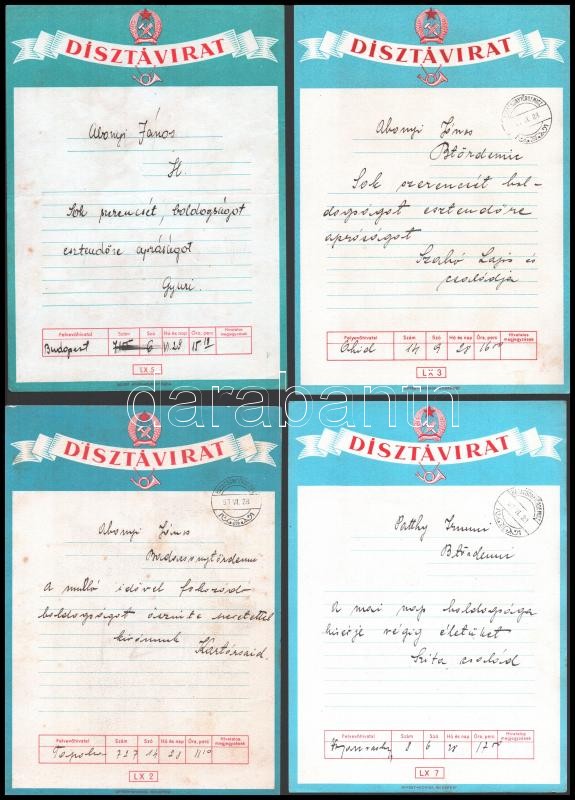 DÍSZTÁVIRAT
Abonyi János
H.
Sok szerencsét, boldogságot
esztendőre apróságot
Gyuri.
Felvevőhivatal Szám Szó Hó és nap Óra, perc Hivatalos megjegyzések
Budapest 6 VI.28 15 10
LX 5
DÍSZTÁVIRAT
Abonyi János
Btördemic
Sok szerencsét bol-
dogságot esztendőre
apróságot
Szabó Lajos és
családja
Felvevőhivatal Szám Szó Hó és nap Óra, perc Hivatalos megjegyzések
14 9 28 16
LX 3
darabanth
DÍSZTÁVIRAT
53 VI. 28
Abonyi János
Badacsonytördemic
A muló idővel fokozódó
boldogságot őszinte szeretettel
kivánnak
Kartársaid.
Felvevőhivatal Szám Szó Hó és nap Óra, perc Hivatalos megjegyzések
Tapolca 727 14 28 11 10
LX 2
DÍSZTÁVIRAT
Btördemic
A mai nap boldogsága
kisérje végig életüket
Szita család
Felvevőhivatal Szám Szó Hó és nap Óra, perc Hivatalos megjegyzések
8 6 28 17
LX 7